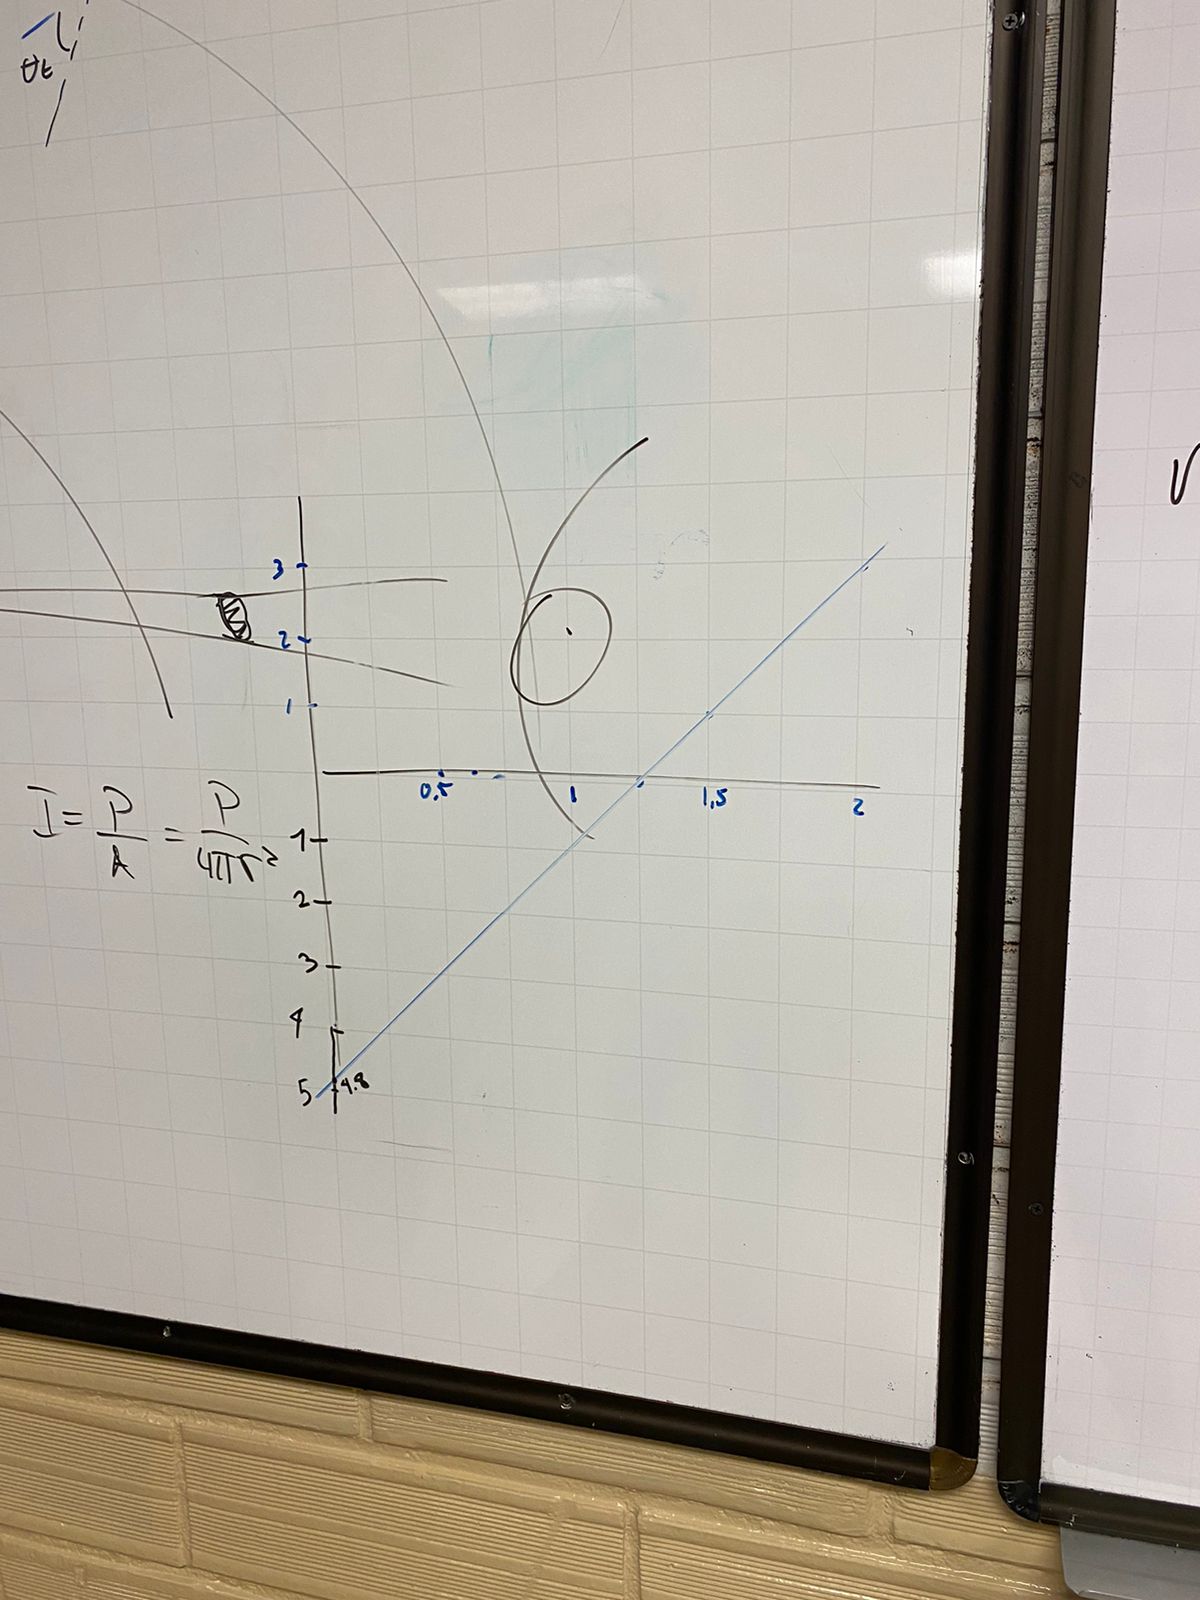 θt
3
2
1
0,5 1 1,5 2
I = P/A = P/4πr²
1
2
3
4
5 4.8